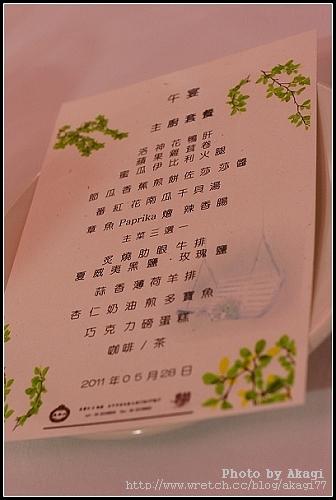 午宴
主廚套餐
洛神花鴨肝
蘋果雞茸卷
蜜瓜伊比利火腿
節瓜香蕉煎餅佐莎莎醬
番紅花南瓜干貝湯
章魚Paprika燴辣香腸
主菜三選一
炙燒肋眼牛排
夏威夷黑鹽．玫瑰鹽
蒜香薄荷羊排
杏仁奶油煎多寶魚
巧克力磅蛋糕
咖啡/茶
2011年05月28日
Photo by Akagi
http://www.wretch.cc/blog/akagi77